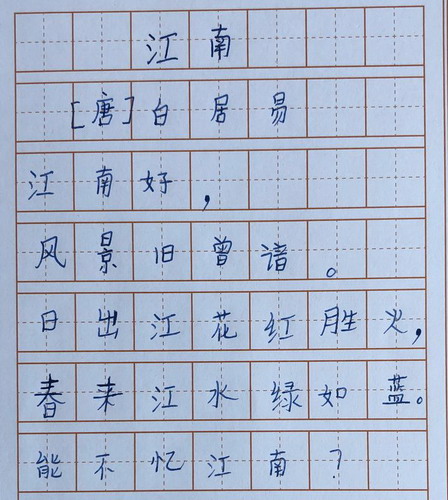 江南
[唐]白居易
江南好，
风景旧曾谙。
日出江花红胜火，
春来江水绿如蓝。
能不忆江南？